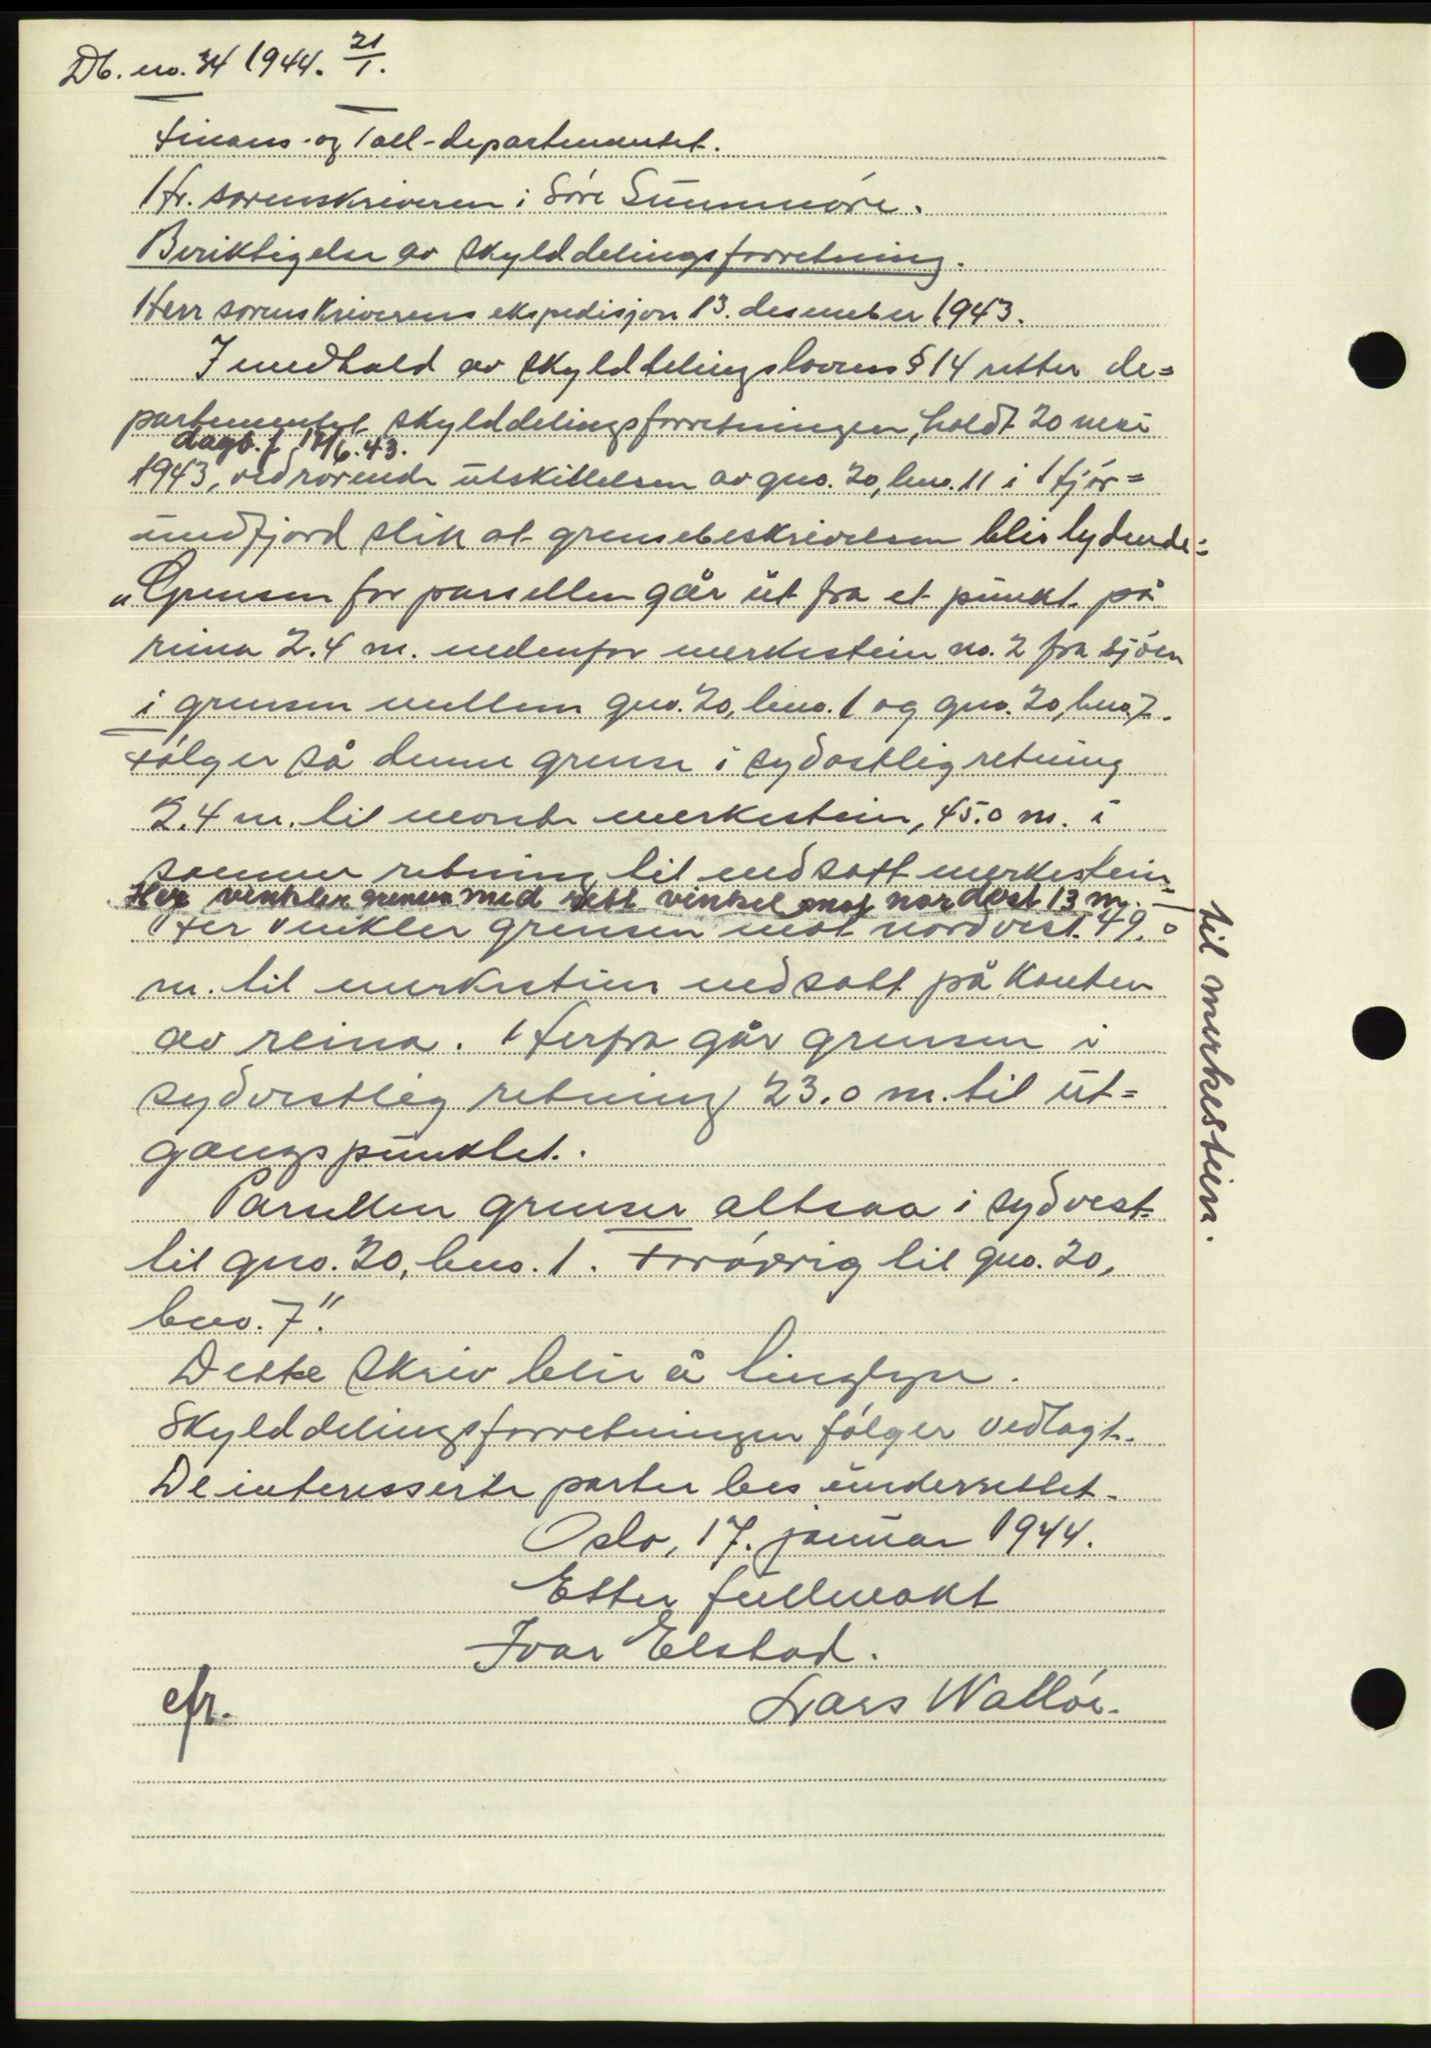 Db. no. 34 1944. 21/1.
Finans- og Toll-departementet.
Hr. sorenskriveren i Söre Sunnmöre.
Beriktigelse av skylddelingsforretning.
Herr sorenskriverens ekspedisjon 13. desember 1943.
I medhold av skylddelingslovens § 14 retter de=
partementet skylddelingsforretningen, holdt 20 mai
dagb.f. 17/6.43.
1943, vedrörende utskillelsen av gno. 20, bno. 11 i Hjör=
undfjord slik at grensebeskrivelsen blir lydende:
„Grensen for parsellen går ut fra et punkt på
reina 2.4 m. nedenfor merkestein no. 2 fra sjöen
i grensen mellem gno. 20, bno. 1 og gno. 20, bno. 7.
Fölger så denne grense i sydöstlig retning
2.4 m. til nevnte merkestein, 45.0 m. i
samme retning til nedsatt merkestein
Her vinkler grensen med rett vinkel mot nordöst 13 m.
Her vinkler grensen mot nordvest 49.0
m. til merkestein nedsatt på kanten
av reina. Herfra går grensen i
sydvestlig retning 23.0 m. til ut=
gangspunktet.
Parsellen grenser altsaa i sydvest
til gno. 20, bno. 1. Forövrig til gno. 20,
bno. 7".
Dette skriv blir å tinglyse.
Skylddelingsforretningen fölger vedlagt.
De interesserte parter bes underrettet.
Oslo, 17. januar 1944.
Etter fullmakt
Ivar Elstad.
Lars Wallöe.
efr.
til merkestein.